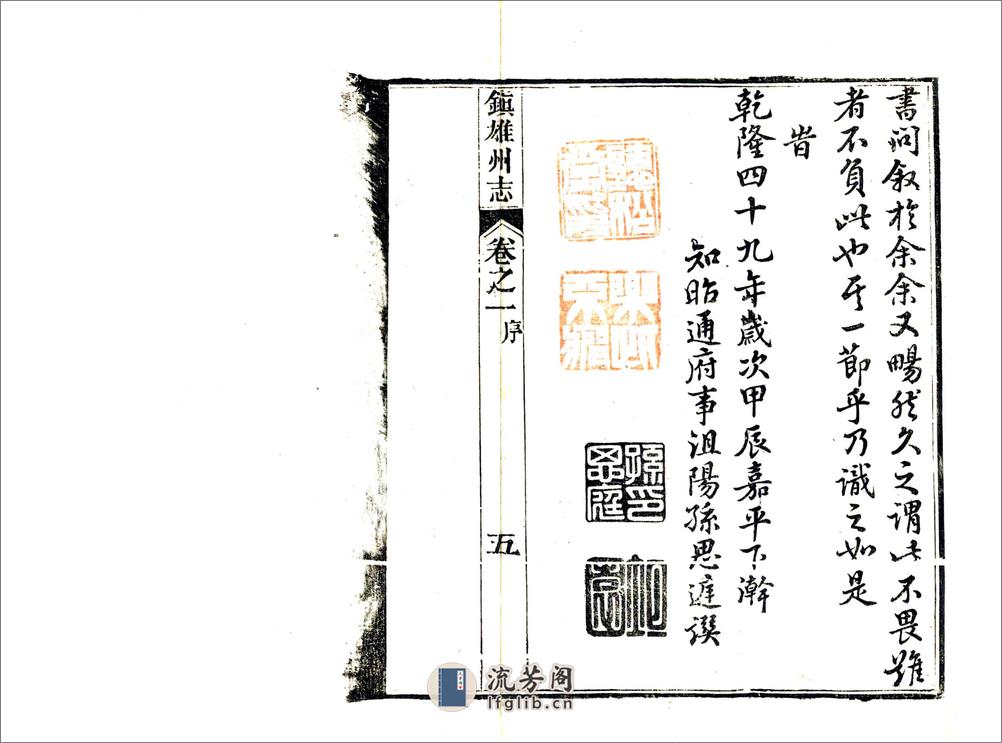 書問叙於余余又暢然久之謂此不畏難
者不負此也其一節乎乃識之如是
旹
乾隆四十九年歲次甲辰嘉平下澣
知昭通府事沮陽孫思庭譔
孫思庭印
鎮雄州志
卷之一
序
五
流芳阁
lfglib.cn